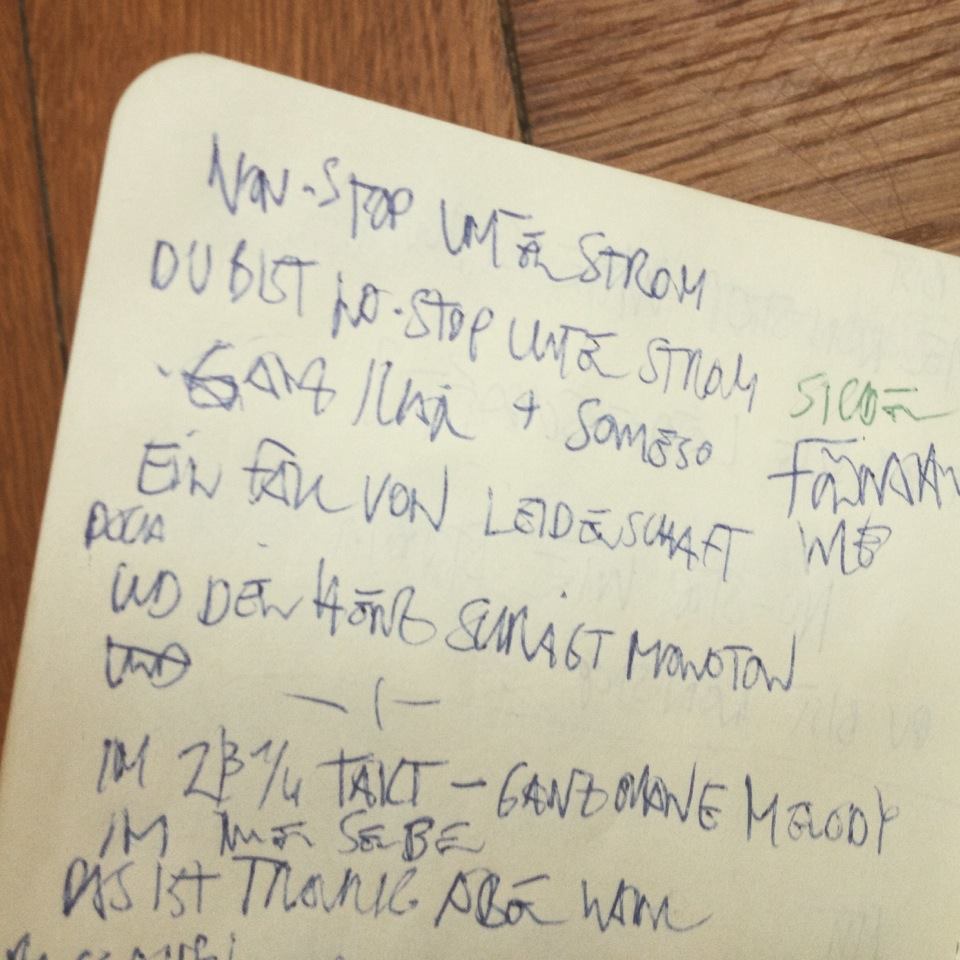 NON-STOP UNTER STROM
DU BIST NO-STOP UNTER STROM
GANZ KLAR + SOWIESO
EIN FALL VON LEIDENSCHAFT
DOCH
UND DEIN HERZ SCHLÄGT MONOTON
UND
IM 2/3 1/4 TAKT – GANZ OHNE MELODY
IM
DAS IST TRAURIG ABER WAHR